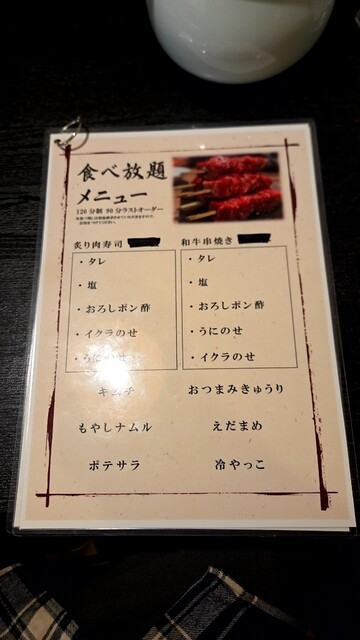 食べ放題
メニュー
120分制 90分ラストオーダー
炙り肉寿司
・タレ
・塩
・おろしポン酢
・イクラのせ
・うにのせ
和牛串焼き
・タレ
・塩
・おろしポン酢
・うにのせ
・イクラのせ
キムチ
おつまみきゅうり
もやしナムル
えだまめ
ポテサラ
冷やっこ